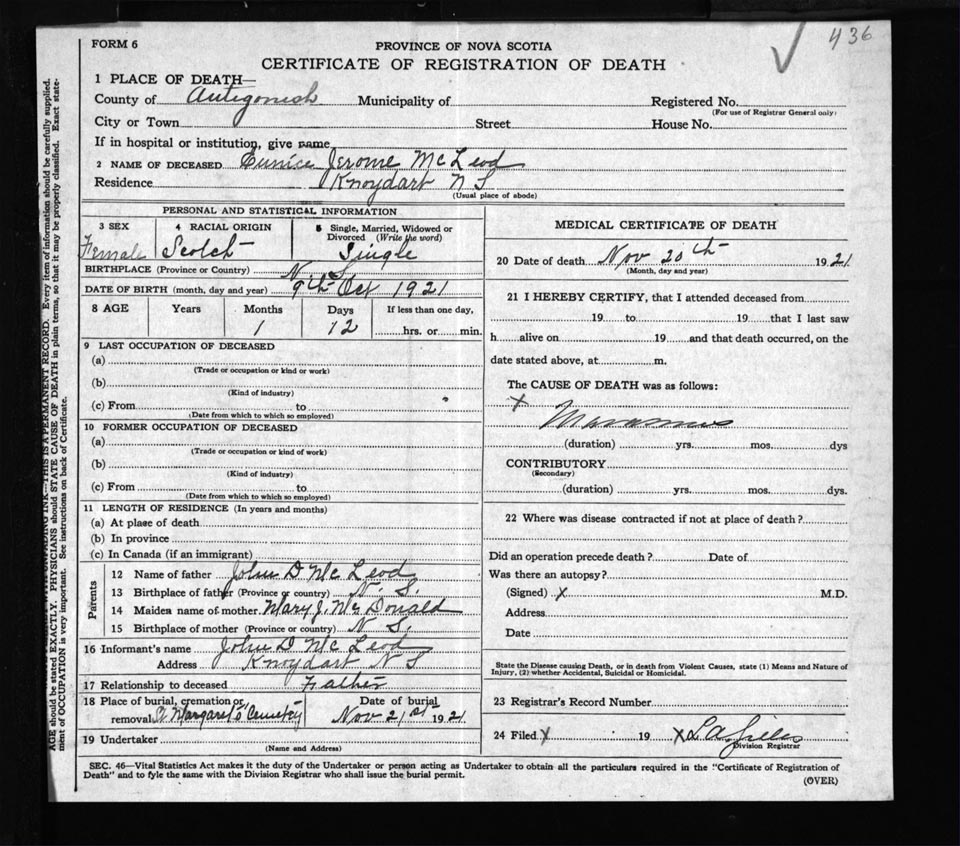 436
FORM 6
PROVINCE OF NOVA SCOTIA
CERTIFICATE OF REGISTRATION OF DEATH
1 PLACE OF DEATH—
County of Antigonish Municipality of Registered No.
(For use of Registrar General only)
City or Town Street House No.
If in hospital or institution, give name
2 NAME OF DECEASED Eunice Jerome McLeod
Residence Knoydart N S
(Usual place of abode)
PERSONAL AND STATISTICAL INFORMATION
3 SEX 4 RACIAL ORIGIN 5 Single, Married, Widowed or Divorced (Write the word)
Female Scotch Single
BIRTHPLACE (Province or Country) N S
DATE OF BIRTH (month, day and year) 9th Oct 1921
8 AGE Years Months Days If less than one day,
1 12 hrs. or min.
9 LAST OCCUPATION OF DECEASED
(a)
(Trade or occupation or kind or work)
(b)
(Kind of industry)
(c) From to
(Date from which to which so employed)
10 FORMER OCCUPATION OF DECEASED
(a)
(Trade or occupation or kind of work)
(b)
(Kind of industry)
(c) From to
(Date from which to which so employed)
11 LENGTH OF RESIDENCE (In years and months)
(a) At place of death
(b) In province
(c) In Canada (if an immigrant)
Parents
12 Name of father John D McLeod
13 Birthplace of father (Province or country) N. S.
14 Maiden name of mother Mary J. McDonald
15 Birthplace of mother (Province or country) N S.
16 Informant's name John D McLeod
Address Knoydart N S
17 Relationship to deceased Father
18 Place of burial, cremation or removal St Margaret's Cemetery
Date of burial Nov 21st 1921
19 Undertaker
(Name and Address)
MEDICAL CERTIFICATE OF DEATH
20 Date of death Nov 20th 1921
(Month, day and year)
21 I HEREBY CERTIFY, that I attended deceased from
19 to 19 that I last saw
h alive on 19 and that death occurred, on the
date stated above, at m.
The CAUSE OF DEATH was as follows:
X
Marasmus
(duration) yrs. mos. dys
CONTRIBUTORY
(Secondary)
(duration) yrs. mos. dys.
22 Where was disease contracted if not at place of death?
Did an operation precede death? Date of
Was there an autopsy?
(Signed) X M.D.
Address
Date
State the Disease causing Death, or in death from Violent Causes, state (1) Means and Nature of
Injury, (2) whether Accidental, Suicidal or Homicidal.
23 Registrar's Record Number
24 Filed X 19 X
Division Registrar
SEC. 46—Vital Statistics Act makes it the duty of the Undertaker or person acting as Undertaker to obtain all the particulars required in the "Certificate of Registration of
Death" and to fyle the same with the Division Registrar who shall issue the burial permit.
(OVER)
THIS IS A PERMANENT RECORD. Every item of information should be carefully supplied.
AGE should be stated EXACTLY. PHYSICIANS should STATE CAUSE OF DEATH in plain terms, so that it may be properly classified. Exact state-
ment of OCCUPATION is very important. See instructions on back of Certificate.